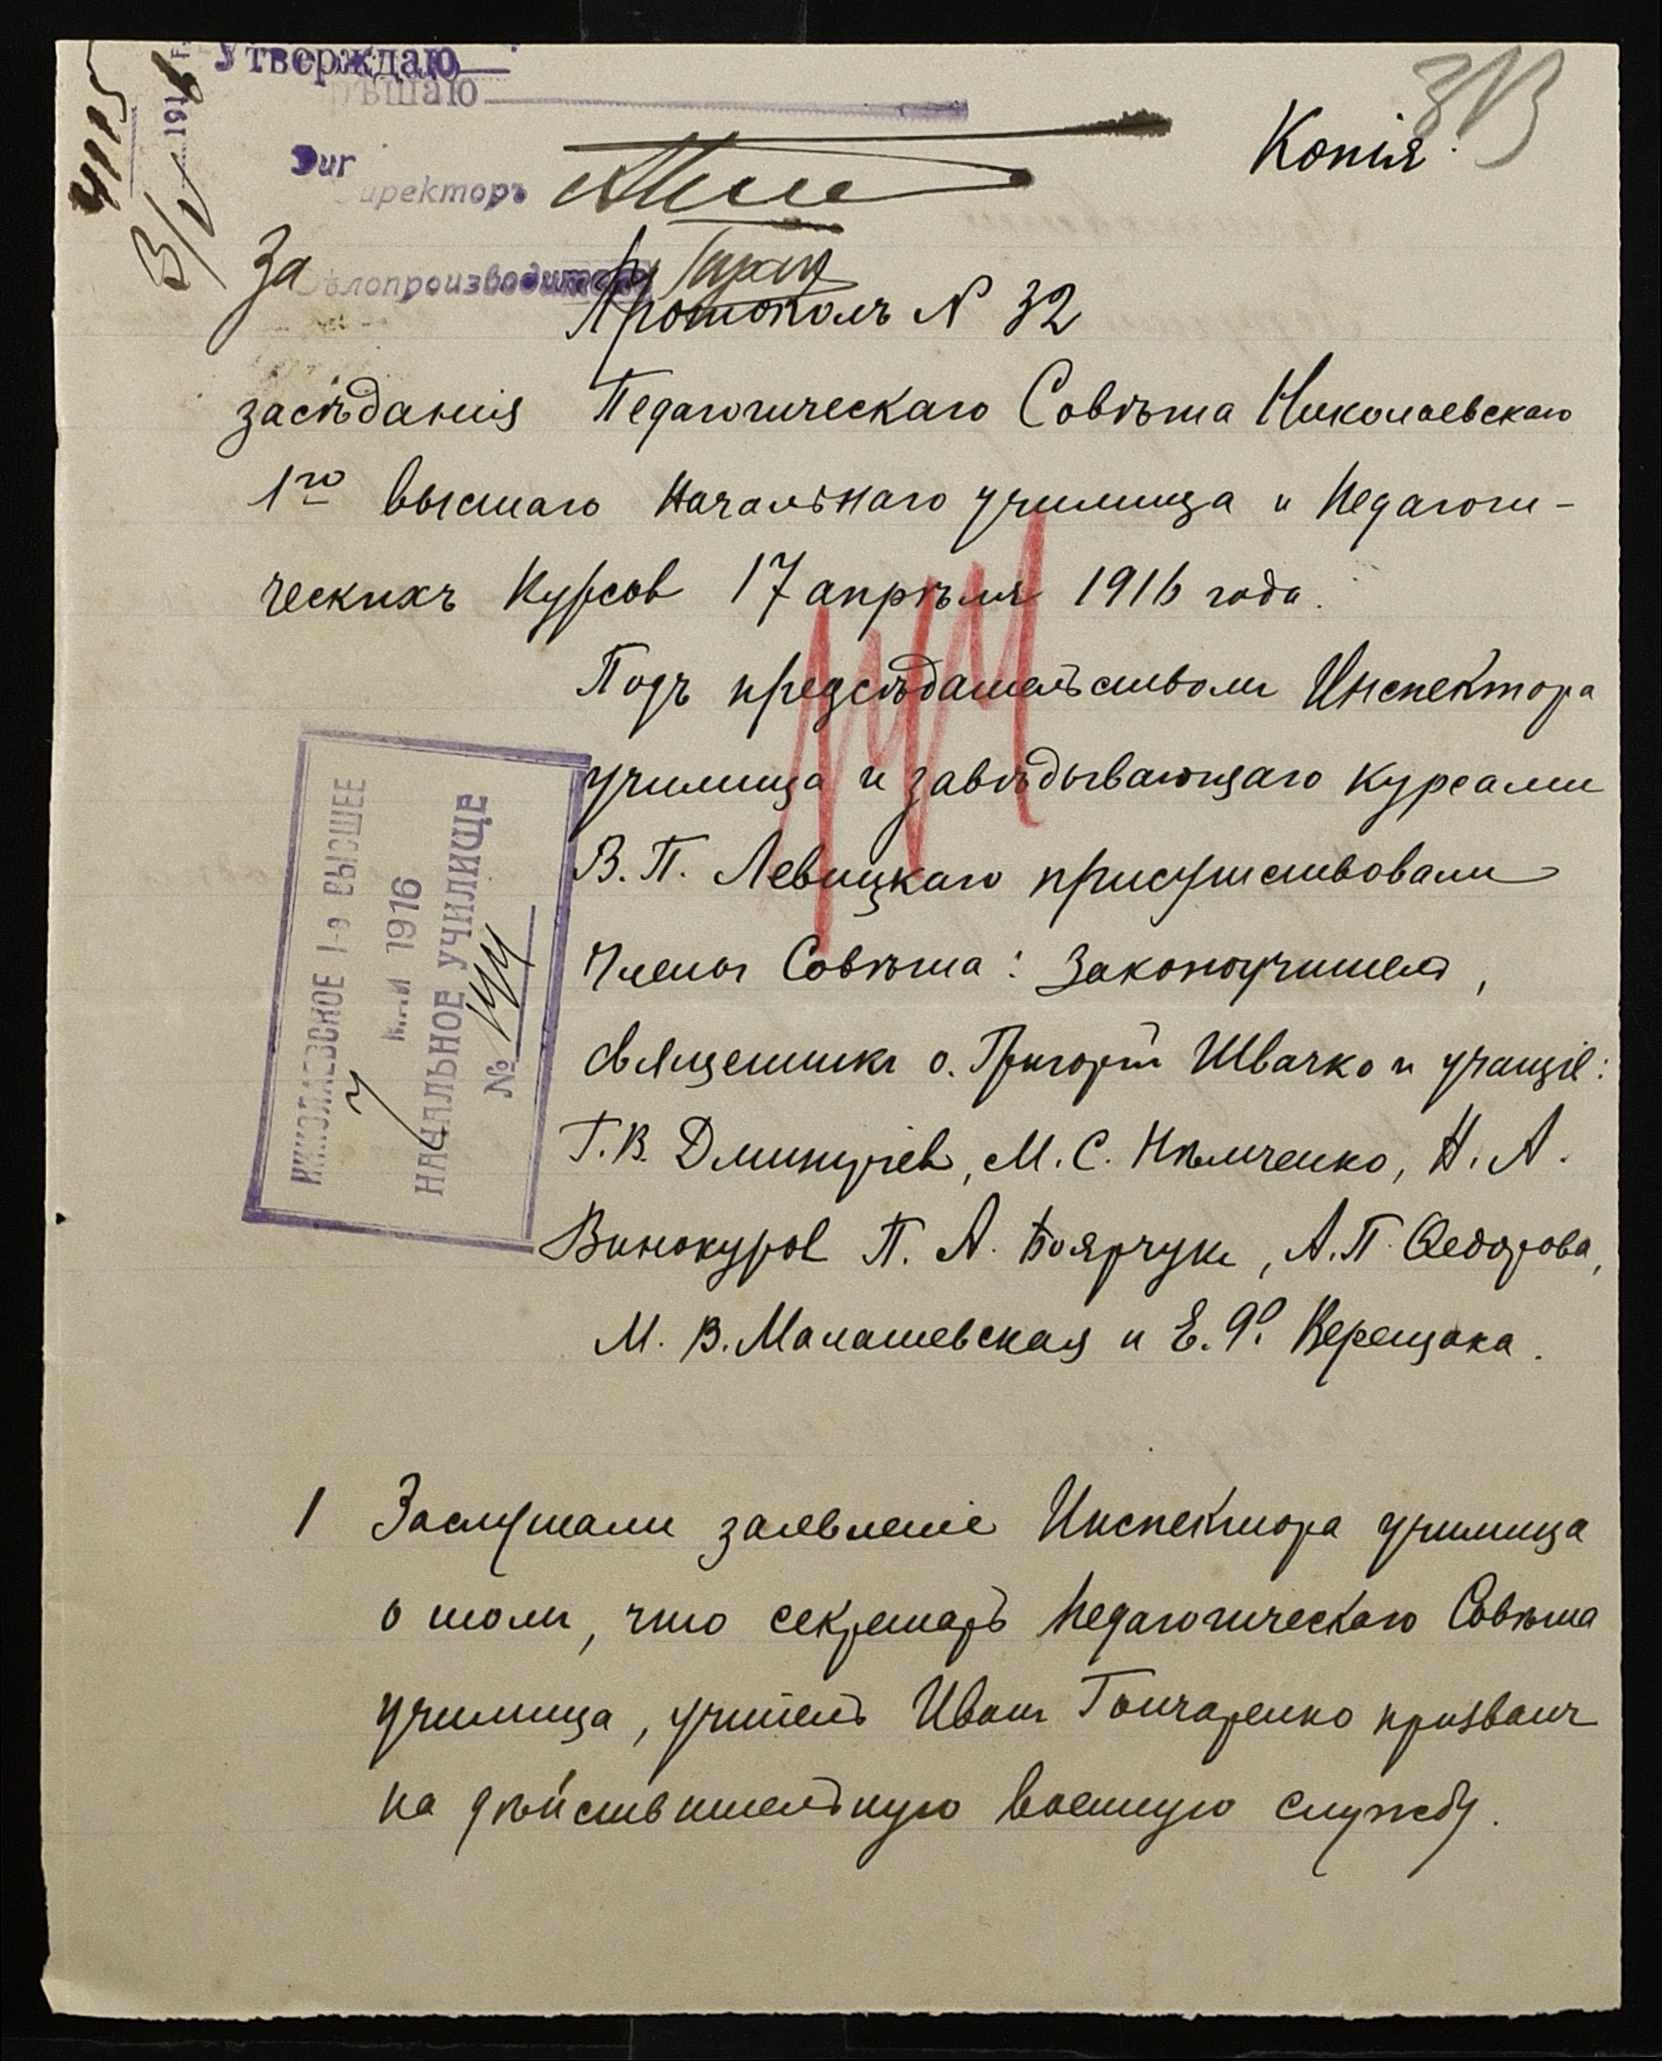 Утверждаю
Директоръ
Копія
4115
3/V 1916
За Дѣлопроизводителя
Протоколъ N 32
засѣданія Педагогическаго Совѣта Николаевскаго
1го высшаго Начальнаго училища и Педагоги-
ческихъ Курсов 17 апрѣля 1916 года.
Подъ предсѣдательством Инспектора
училища и завѣдывающаго курсами
В. П. Левицкаго присутствовали
Члены Совѣта: Законоучитель,
священник о. Григорій Швачко и учащіе:
Г. В. Дмитріев, М. С. Нѣмченко, Н. А.
Винокуров П. А. Боярчук, А. П. Федорова,
М. В. Малашевская и Е. Ф. Верещака.
НИКОЛАЕВСКОЕ 1-е ВЫСШЕЕ
МАЙ 1916
НАЧАЛЬНОЕ УЧИЛИЩЕ
№
1 Заслушали заявленіе Инспектора училища
о том, что секретарь Педагогическаго Совѣта
училища, учитель Иван Гончаренко призван
на дѣйствительную военную службу.